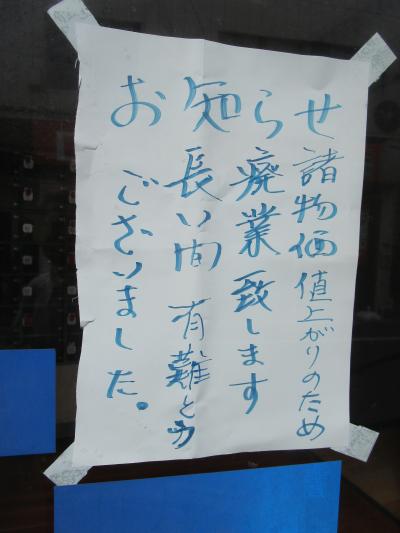 お知らせ
諸物価値上がりのため
廃業致します
長い間 有難とう
ございました。